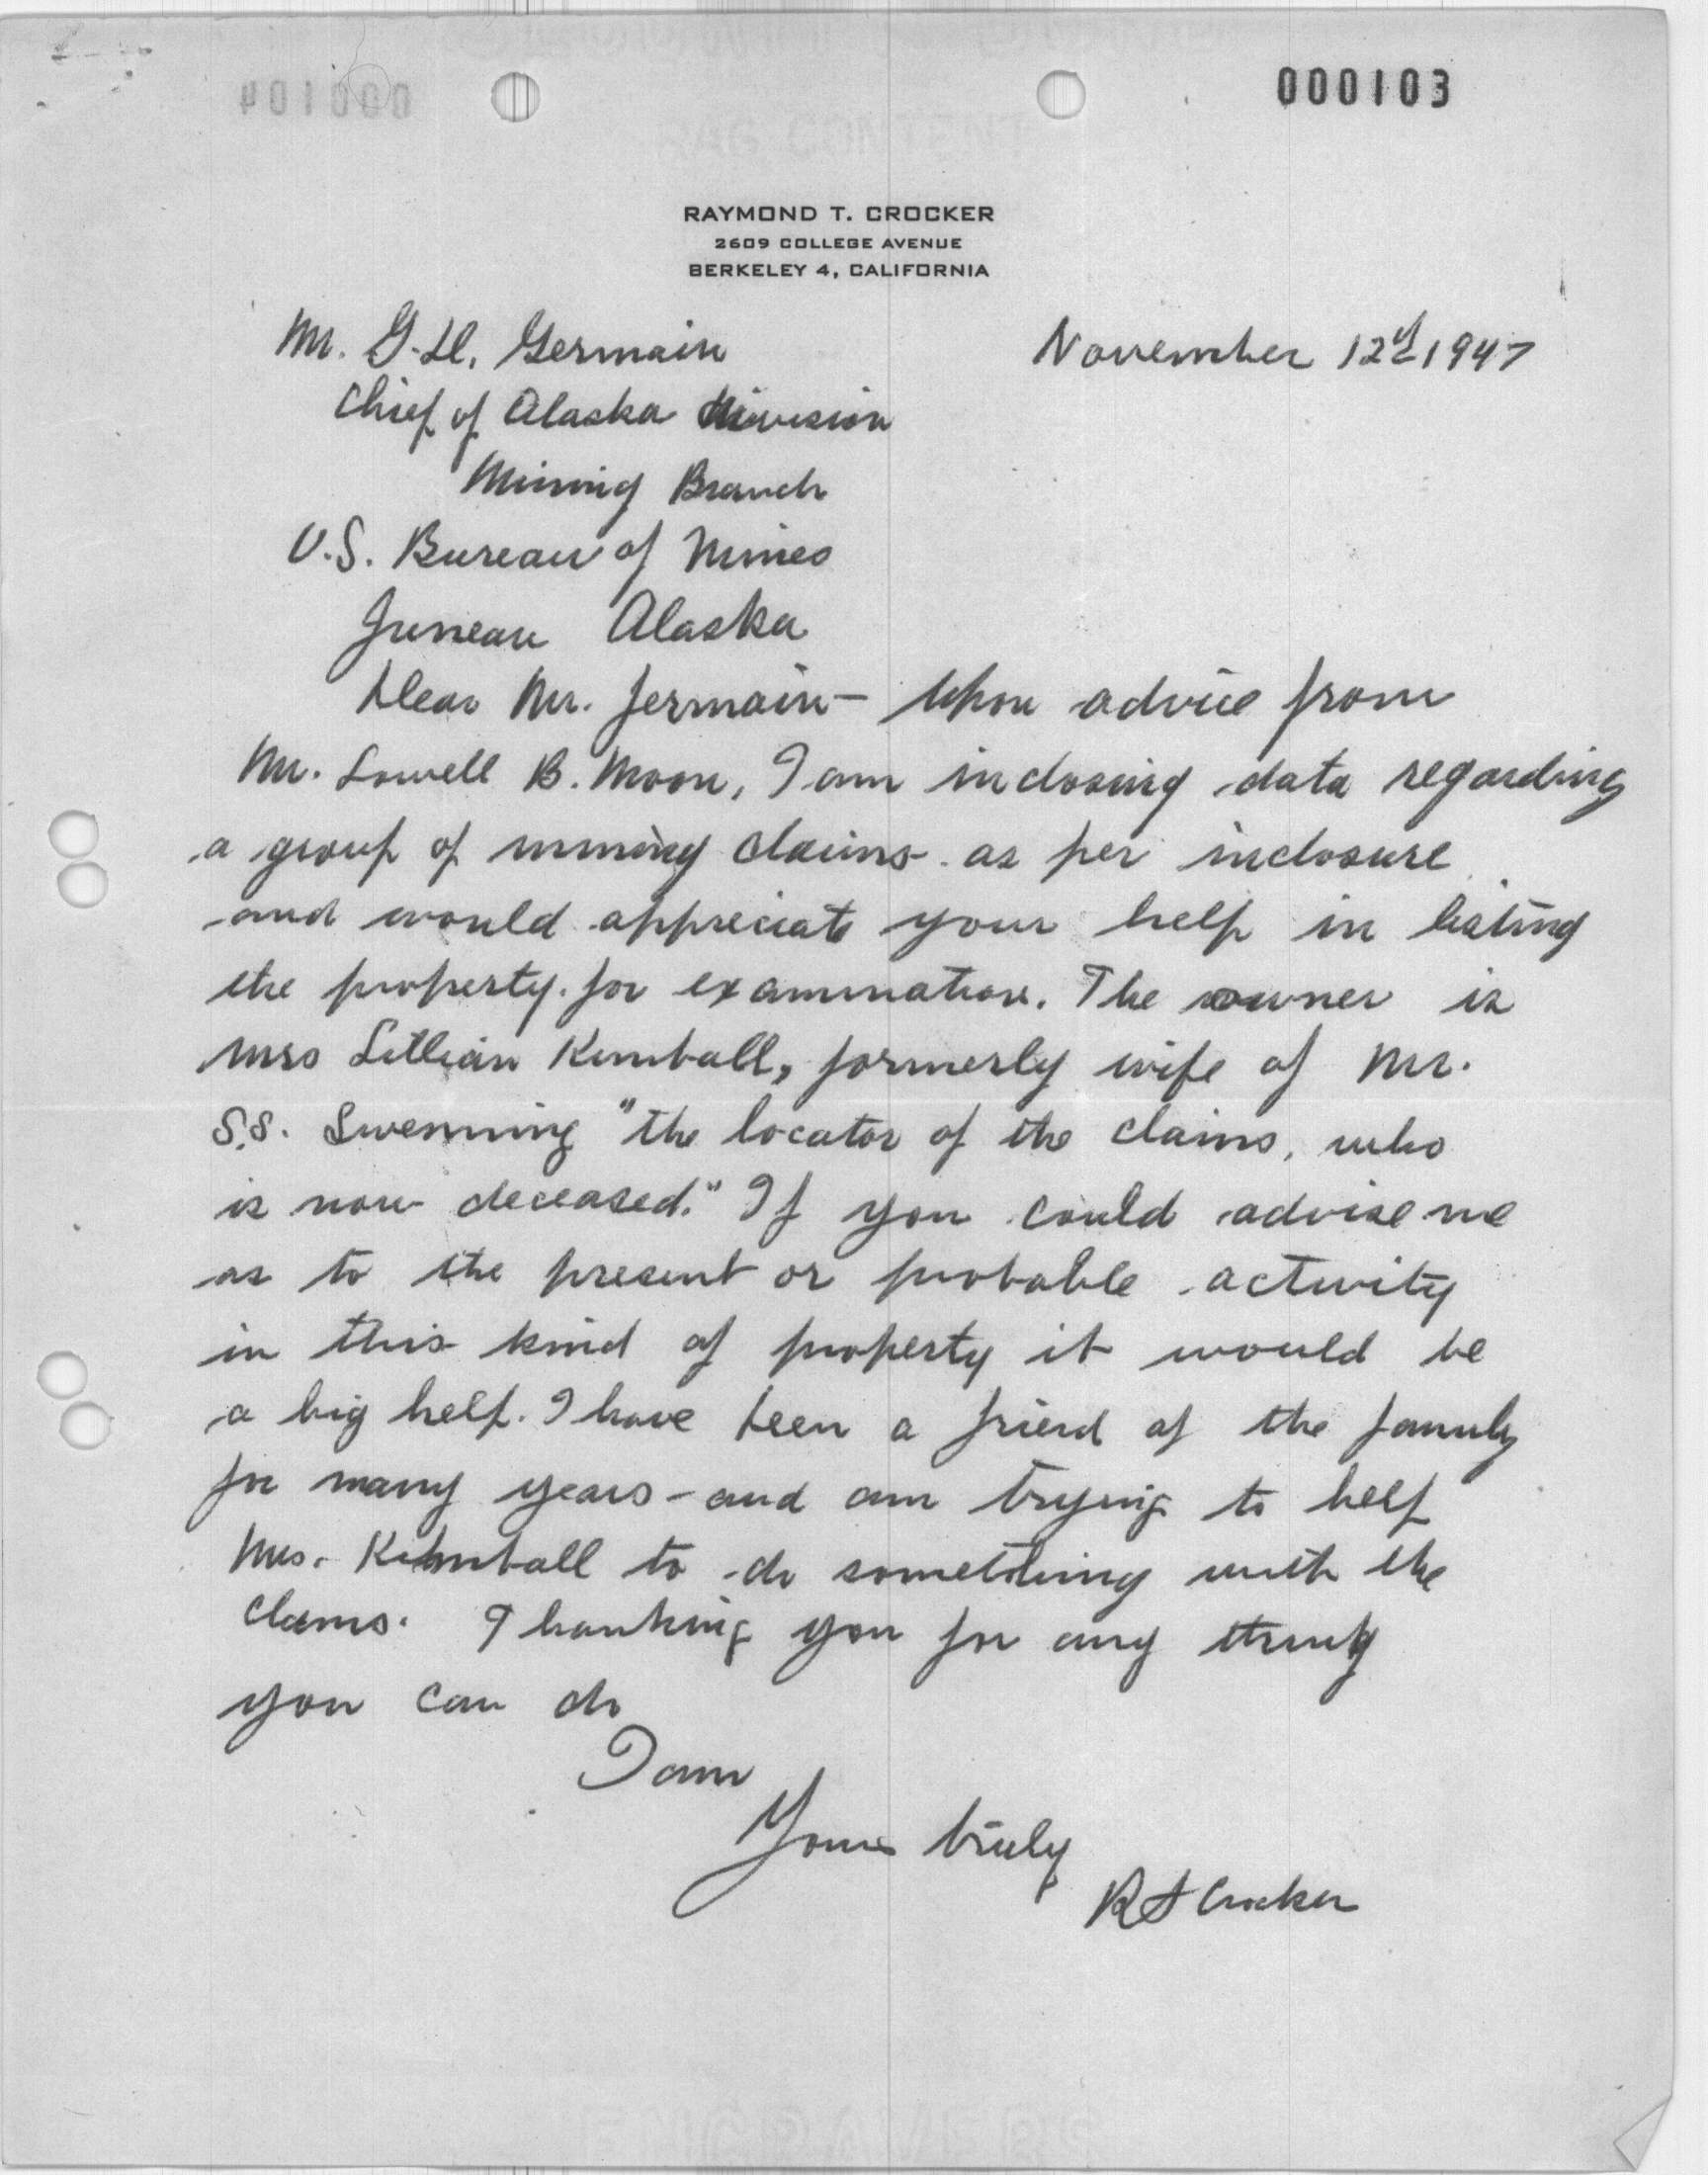 000103
RAYMOND T. CROCKER
2609 COLLEGE AVENUE
BERKELEY 4, CALIFORNIA
Mr. G. H. Germain November 12th 1947
Chief of Alaska Division
Mining Branch
U.S. Bureau of Mines
Juneau Alaska
Dear Mr. Jermain - Upon advice from
Mr. Lowell B. Moon, I am inclosing data regarding
a group of mining claims as per inclosure
and would appreciate your help in listing
the property for examination. The owner is
Mrs Lillian Kimball, formerly wife of Mr.
S.S. Swenning "the locator of the claims, who
is now deceased." If you could advise me
as to the present or probable activity
in this kind of property it would be
a big help. I have been a friend of the family
for many years - and am trying to help
Mrs. Kimball to do something with the
claims. Thanking you for any thing
you can do
I am
Yours truly
R T Crocker